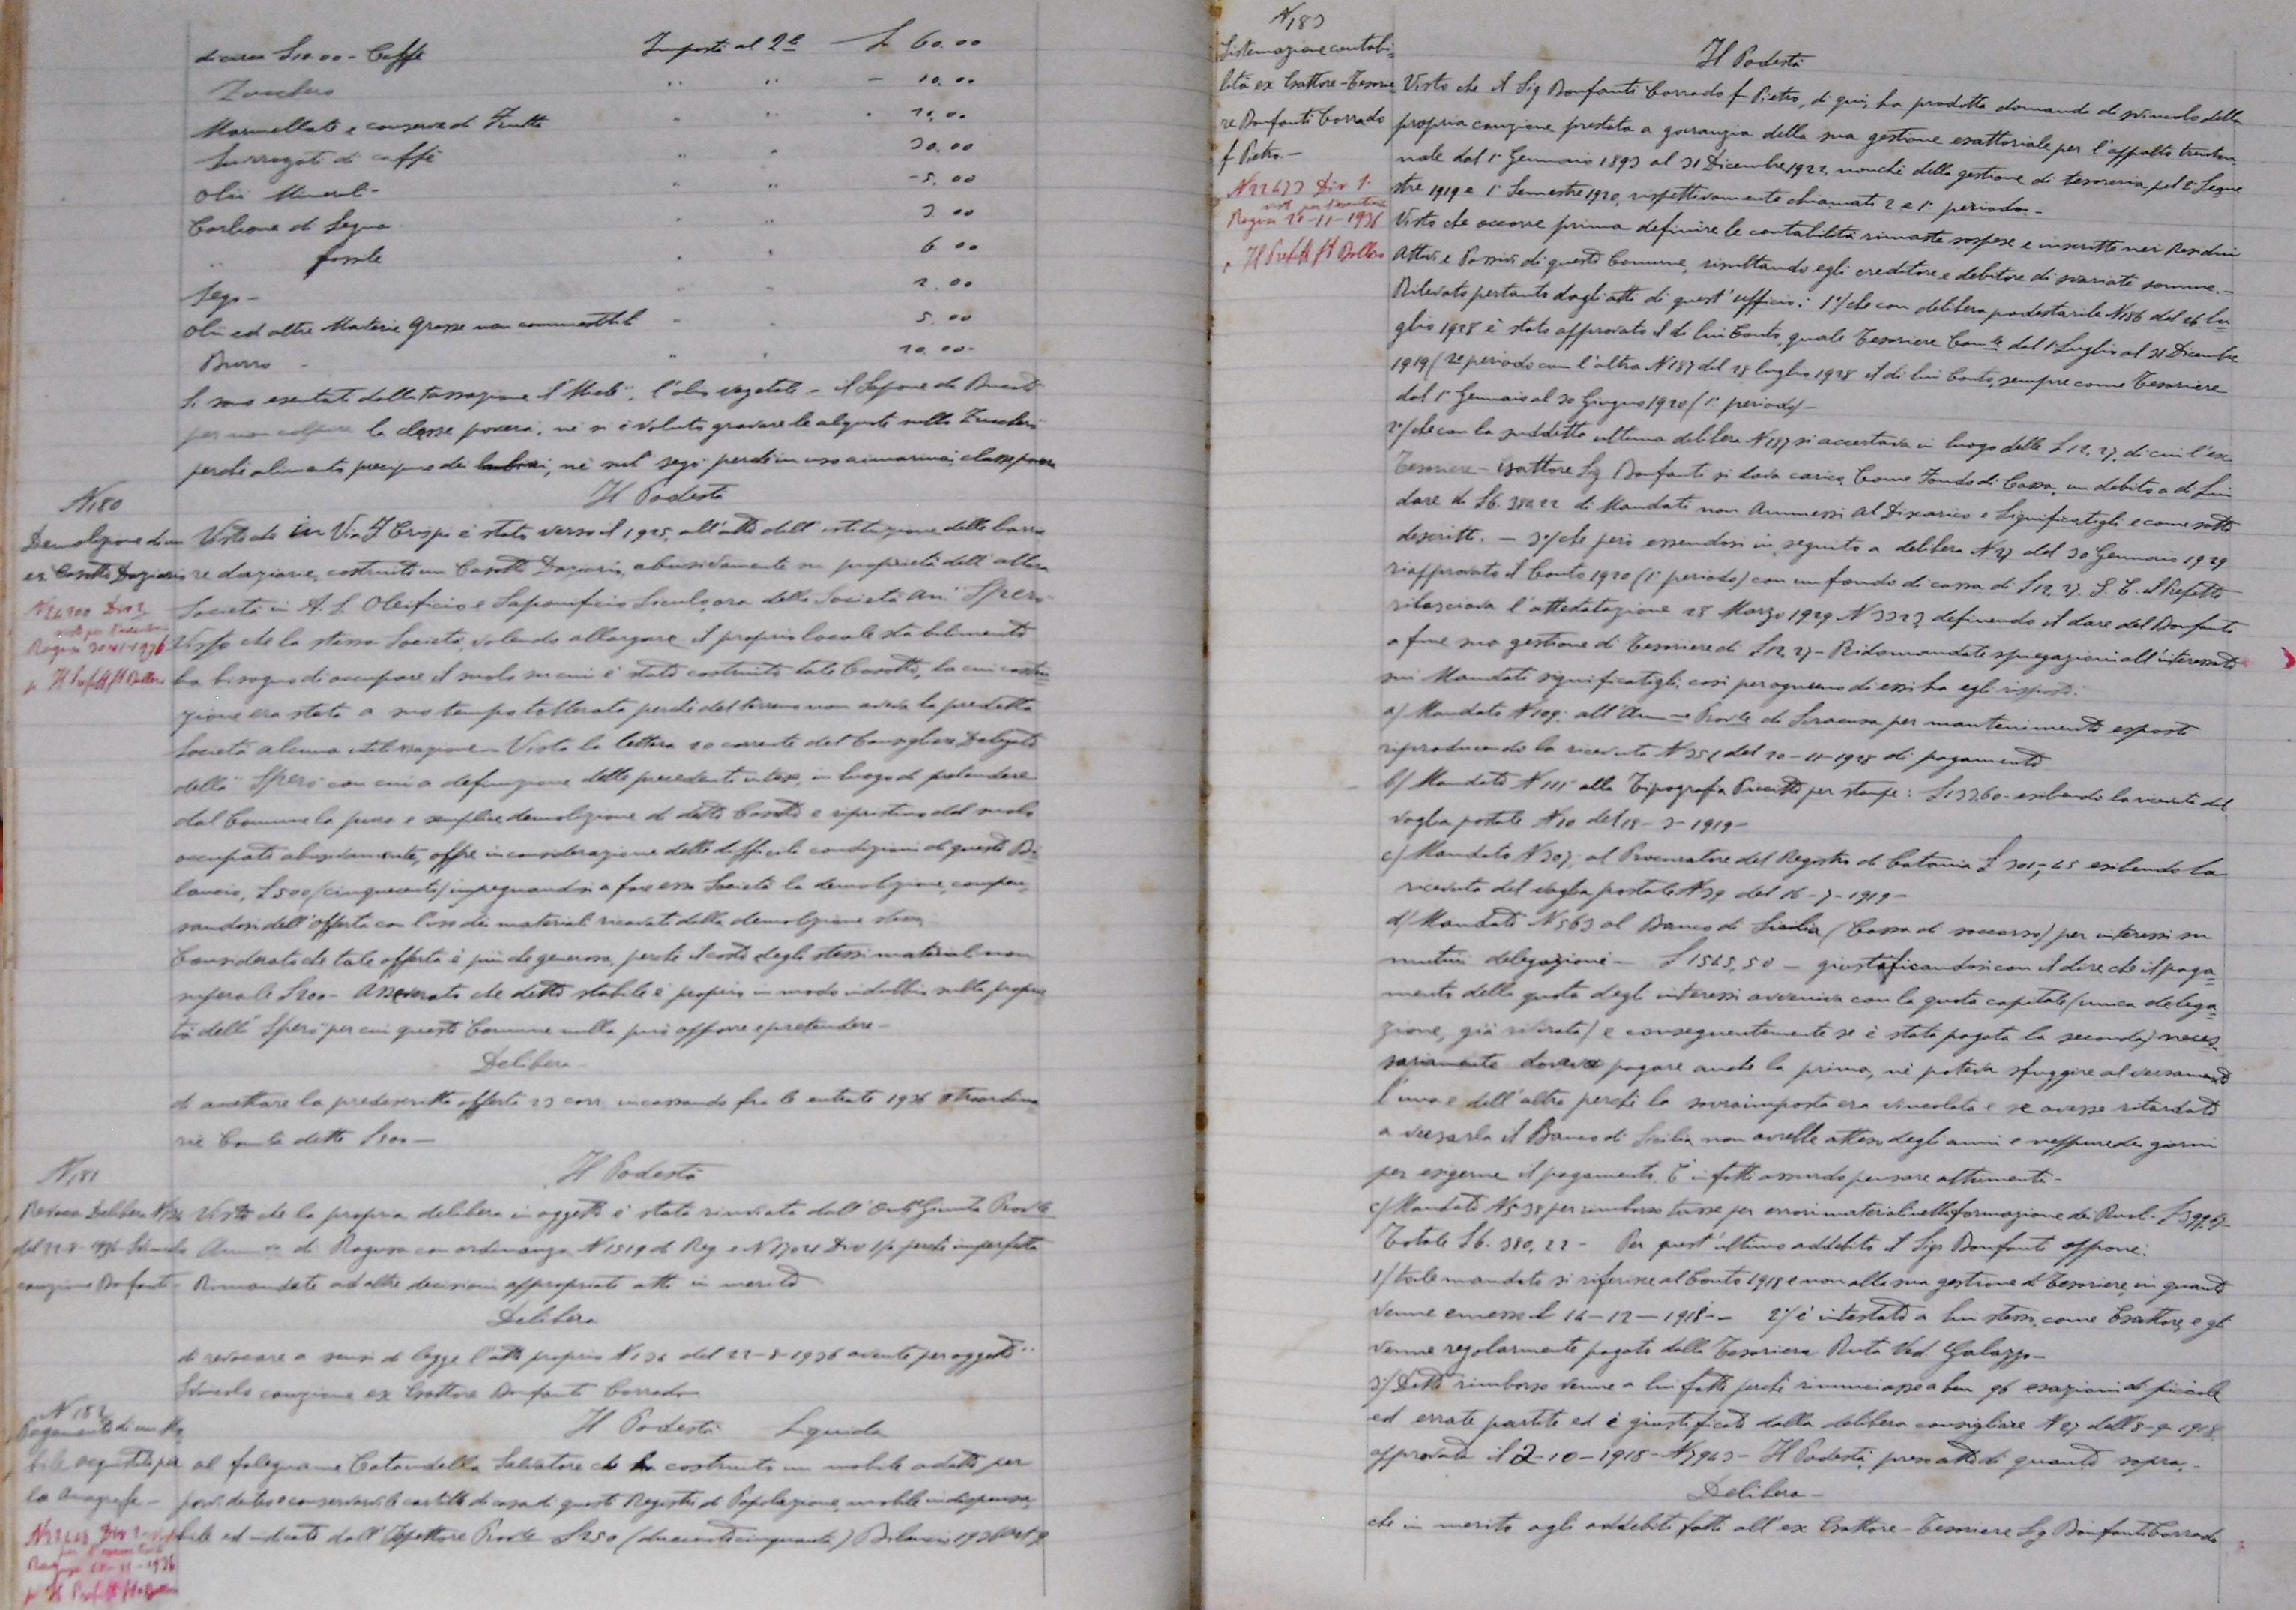 di cacao L 10.00 - Caffè Imposti al 2le L 60.00
Zucchero " " - 10.00
Marmellate e conserve di Frutta " " 20.00
Surrogati di caffè " " 30.00
Olii Minerali - " " 5.00
Carbone di Legna " " 3.00
" fossile " " 6.00
Sego - " " 2.00
Olii ed altre Materie Grasse non commestibili " " 5.00
Burro - " " 20.00-
Si sono esentati dalla tassazione il "Miele", l'olio vegetale - il Sapone da Bucato
per non colpire la classe povera, nè si è voluto gravare le aliquote sullo Zucchero
perchè alimento precipuo dei bambini, nè sul sego perchè in uso ai marinai, classe povera
N 180
Il Podestà
Demolizione di un
ex Casotto Daziario
N 24200 Div 2
visto per l'esecutorietà
Ragusa 30-11-1936
p Il Prefetto
Visto che in Via F Crispi è stato verso il 1925, all'atto dell'istituzione delle barrie
re daziarie, costruito un Casotto Daziario, abusivamente su proprietà dell'allora
Società in A. S. Oleificio e Saponificio Siculo, ora della Società An. "Spero"
Visto che la stessa Società, volendo allargare il proprio locale stabilimento
ha bisogno di occupare il suolo su cui è stato costruito tale Casotto, la cui costru
zione era stata a suo tempo tollerata perchè del terreno non aveva la predetta
Società alcuna utilizzazione - Vista la lettera 20 corrente del Consigliere Delegato
della "Spero" con cui a definizione delle precedenti intese, in luogo di pretendere
dal Comune la pura e semplice demolizione di detto Casotto e ripristino del suolo
occupato abusivamente, offre in considerazione delle difficili condizioni di questo Bi
lancio, L 500 (cinquecento) impegnandosi a fare essa Società la demolizione, compen
sandosi dell'offerta con l'uso dei materiali ricavati dalla demolizione stessa
Considerato che tale offerta è più che generosa, perchè il costo degli stessi materiali non
supera le L 200 - Assodato che detto stabile è proprio in modo indubbio sulla proprie
tà della "Spero" per cui questo Comune nulla può opporre e pretendere -
Delibera
di accettare la predescritta offerta 23 corr. incassando fra le entrate 1936 straordina
rie Com.le dette L 500 -
N 181
Il Podestà
Revoca Delibera N 134
del 22-8-1936 Svincolo
cauzione Bonfanti -
Visto che la propria delibera in oggetto è stata rinviata dall'On.le Giunta Prov.le
Amm.va di Ragusa con ordinanza N 1519 di Reg e N 17021 Div 1/a perchè imperfetta
Rimandate ad altre decisioni appropriati atti in merito
Delibera
di revocare a sensi di legge l'atto proprio N 134 del 22-8-1936 avente per oggetto "
Svincolo cauzione ex Esattore Bonfanti Corrado
N 182
Il Podestà Liquida
Pagamento di un Mo
bile acquistato per
la Anagrafe -
Div 2
p Il Prefetto
al falegname Catandella Salvatore che ha costruito un mobile adatto per
porvi dentro e conservarvi le cartelle di casa di questo Registro di Popolazione, mobile indispensa
bile ed indicato dall'Ispettore Prov.le L 250 (duecentocinquanta) Bilancio 1936 art 9
N 183
Sistemazione contabi=
lità ex Esattore-Tesorie
re Bonfanti Corrado
f Pietro -
N 22473 Div 1ª
visto per l'esecutorietà
Ragusa 20-11-1936
p Il Prefetto
Il Podestà
Visto che il Sig Bonfanti Corrado f Pietro, di qui, ha prodotto domanda di svincolo della
propria cauzione prestata a garanzia della sua gestione esattoriale per l'appalto trenten
nale dal 1° Gennaio 1893 al 31 Dicembre 1922, nonchè della gestione di tesoreria pel 2° Seme
stre 1919 e 1° Semestre 1920, rispettivamente chiamati 2 e 1° periodo -
Visto che occorre prima definire le contabilità rimaste sospese e inscritte nei Residui
Attivi e Passivi di questo Comune, risultando egli creditore e debitore di svariate somme. -
Rilevato pertanto dagli atti di quest'ufficio: 1°/ che con delibera podestarile N 186 del 26 lu
glio 1928 è stato approvato il di lui Conto, quale Tesoriere Com.le dal 1° Luglio al 31 Dicembre
1919 (2° periodo) con l'altra N 187 del 28 luglio 1928 il di lui Conto, sempre come Tesoriere
dal 1° Gennaio al 30 Giugno 1920 (1° periodo) -
2°/ che con la suddetta ultima delibera N 187 si accertava in luogo delle L 12,27, di cui l'ex
Tesoriere-Esattore Sig Bonfanti si dava carico, Come Fondo di Cassa, un debito a di lui
dare di L 6.380.22 di Mandati non Ammessi al Discarico e Significatigli e come sotto
descritti. - 3°/ che però essendosi in seguito a delibera N 27 del 30 Gennaio 1929
riapprovato il Conto 1920 (1° periodo) con un fondo di cassa di L 12,27. S. E. il Prefetto
rilasciava l'attestazione 28 Marzo 1929 N 3323, definendo il dare del Bonfanti
a fine sua gestione di Tesoriere di L 12,27 - Ridomandate spiegazioni all'interessato
sui Mandati significatigli, così per ognuno di essi ha egli risposto:
a/ Mandato N 109: all'Amm.ne Prov.le di Siracusa per mantenimento esposti
riproducendo la ricevuta N 351 del 20-11-1928 di pagamento
b/ Mandato N 111 alla Tipografia Piccitto per stampe: L 133,60 - esibendo la ricevuta del
vaglia postale N 10 del 18-3-1919 -
c/ Mandato N 307, al Procuratore del Registro di Catania L 301,45 esibendo la
ricevuta del vaglia postale N 39 del 16-7-1919 -
d/ Mandato N 563 al Banco di Sicilia (Cassa di soccorso) per interessi su
mutui delegazioni - L 1565,50 - giustificandosi con il dire che il paga=
mento della quota degli interessi avveniva con la quota capitale (unica delega=
zione, già ritirata) e conseguentemente se è stata pagata la seconda, neces=
sariamente dovevasi pagare anche la prima, nè poteva sfuggire al versamento
l'una e dell'altra perchè la sovraimposta era vincolata e se avesse ritardato
a versarla il Banco di Sicilia non avrebbe atteso degli anni e neppure dei giorni
per esigerne il pagamento. È infatti assurdo pensare altrimenti -
e/ Mandato N 538 per rimborso tasse per errori materiali nella formazione dei Ruoli -
Totale L 6.380,22 - Per quest'ultimo addebito il Sig Bonfanti oppone:
1/ tale mandato si riferisce al Conto 1918 e non alla sua gestione di Tesoriere, in quanto
venne emesso il 14-12-1918 - 2°/ è intestato a lui stesso, come Esattore, e gli
venne regolarmente pagato dalla Tesoriera Ruta Ved Galazzo -
3°/ Detto rimborso venne a lui fatto perchè rinunciasse a ben 96 esazioni di piccole
ed errate partite ed è giustificato dalla delibera consigliare N 27 dell'8-9-1918
approvata il 2-10-1918 - N 7963 - Il Podestà, preso atto di quanto sopra, -
Delibera -
che in merito agli addebiti fatti all'ex Esattore-Tesoriere Sig Bonfanti Corrado